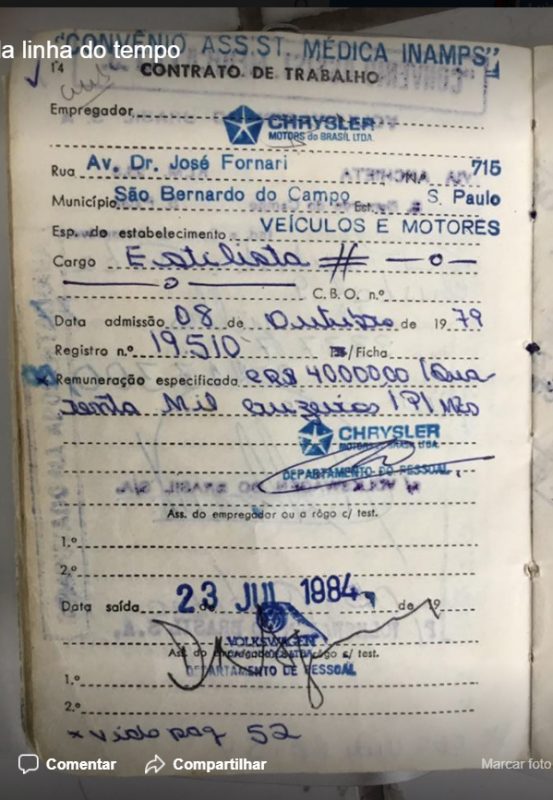 da linha do tempo
"CONVÊNIO ASS.ST. MÉDICA INAMPS"
14
CONTRATO DE TRABALHO
Empregador
CHRYSLER
MOTORS do BRASIL LTDA.
Rua Av. Dr. José Fornari 715
Município São Bernardo do Campo Est. S. Paulo
Esp. do estabelecimento VEÍCULOS E MOTORES
Cargo Estilista
C.B.O. n.º
Data admissão 08 de Outubro de 1979
Registro n.º 19510 /Ficha
x Remuneração especificada CR$ 40.000,00 (Qua
renta Mil Cruzeiros) P/ Mês
CHRYSLER
MOTORS do BRASIL LTDA.
DEPARTAMENTO DO PESSOAL
Ass. do empregador ou a rôgo c/ test.
1.º
2.º
Data saída 23 JUL 1984 de 19
VOLKSWAGEN
Ass. do rôgo c/ test.
DEPARTAMENTO DE PESSOAL
1.º
2.º
x vide pag 52
Comentar Compartilhar Marcar foto